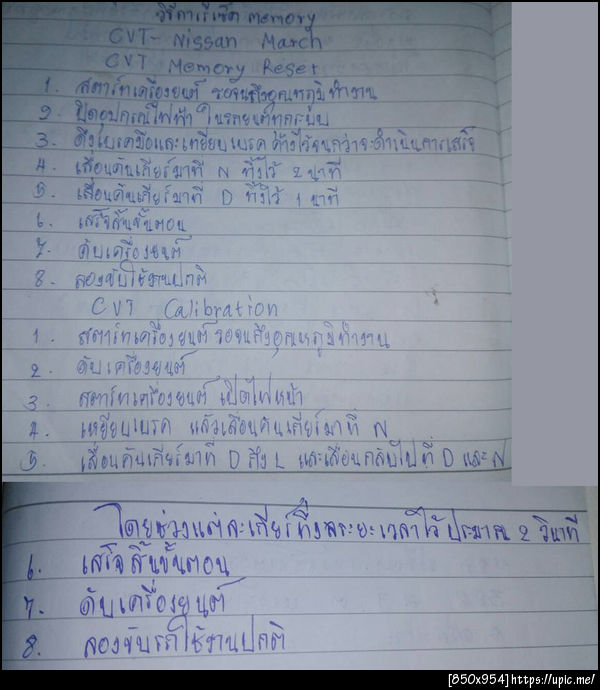 วิธีการรีเซ็ต memory
CVT- Nissan March
CVT Memory Reset
1. สตาร์ทเครื่องยนต์ รอจนถึงอุณหภูมิทำงาน
2. ปิดอุปกรณ์ไฟฟ้า ในรถยนต์ทุกระบบ
3. ดึงเบรคมือและเหยียบเบรค ค้างไว้จนกว่าจะดำเนินการเสร็จ
4. เลื่อนคันเกียร์มาที่ N ทิ้งไว้ 2 นาที
5. เลื่อนคันเกียร์มาที่ D ทิ้งไว้ 1 นาที
6. เสร็จสิ้นขั้นตอน
7. ดับเครื่องยนต์
8. ลองขับใช้งานปกติ
CVT Calibration
1. สตาร์ทเครื่องยนต์ รอจนถึงอุณหภูมิทำงาน
2. ดับเครื่องยนต์
3. สตาร์ทเครื่องยนต์ เปิดไฟหน้า
4. เหยียบเบรค แล้วเลื่อนคันเกียร์มาที่ N
5. เลื่อนคันเกียร์มาที่ D ถึง L และเลื่อนกลับไปที่ D และ N
โดยช่วงแต่ละเกียร์ทิ้งระยะเวลาไว้ ประมาณ 2 วินาที
6. เสร็จสิ้นขั้นตอน
7. ดับเครื่องยนต์
8. ลองขับรถใช้งานปกติ
[850x954] https://upic.me/